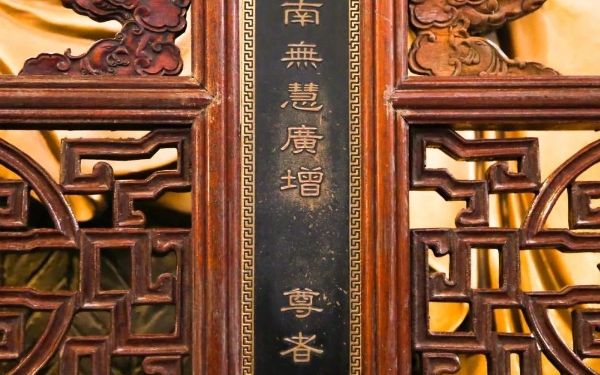 南無慧廣增 尊者